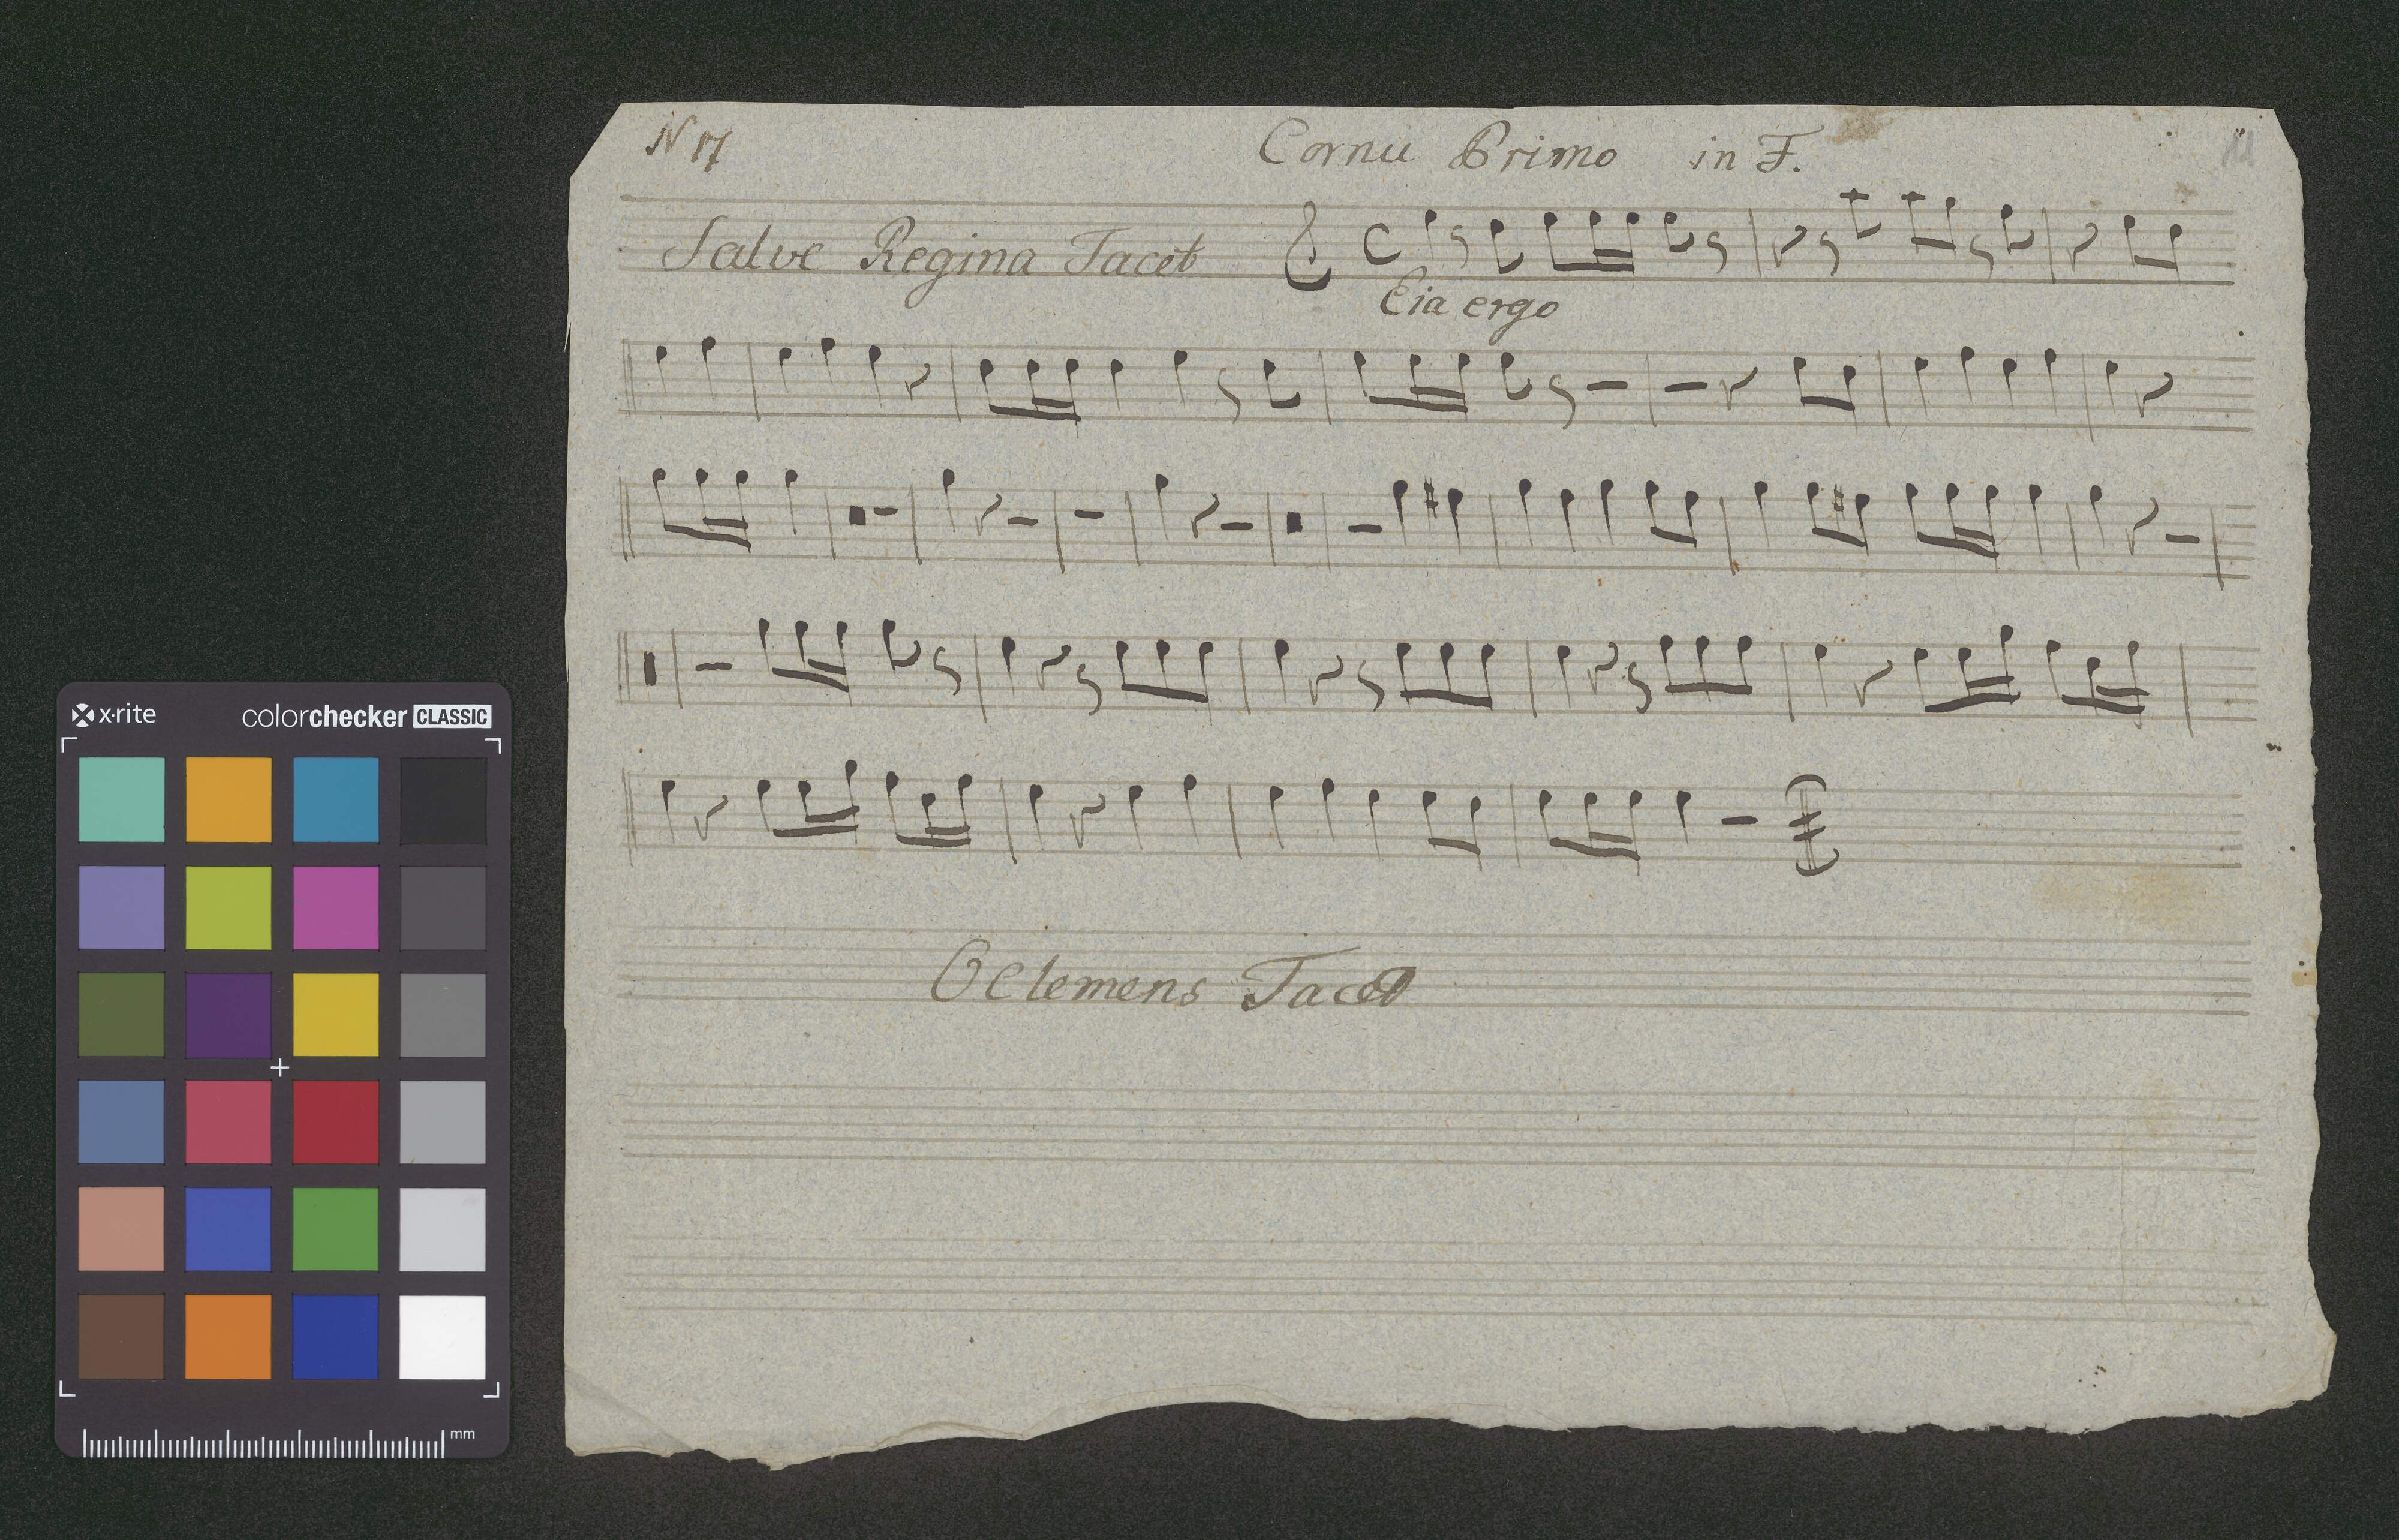 N 17
Cornu Primo in F.
Salve Regina Tacet
Eia ergo
O Clemens Tacet
x·rite colorchecker CLASSIC
mm